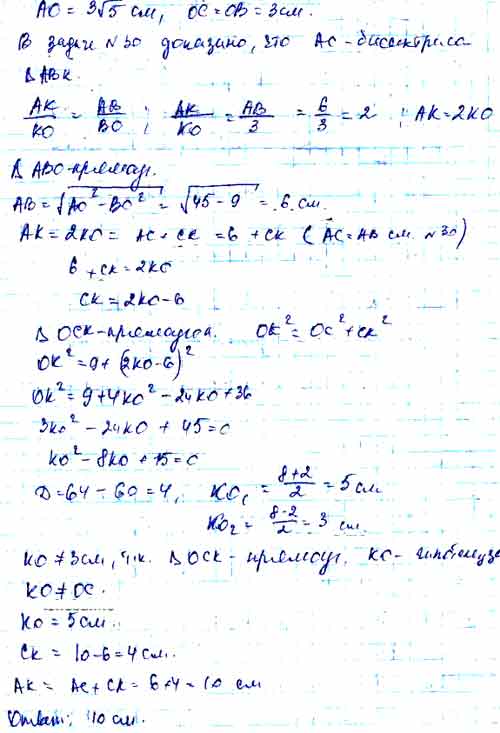 AO = 3√5 см, OC = OB = 3 см.
В задаче №30 доказано, что AC - биссектриса
Δ ABK.
AK/KO = AB/BO ; AK/KO = AB/3 = 6/3 = 2 ; AK = 2KO
Δ ABO - прямоуг.
AB = √(AO² - BO²) = √(45 - 9) = 6 см.
AK = 2KO = AC + CK = 6 + CK ( AC = AB см. №30)
6 + CK = 2KO
CK = 2KO - 6
Δ OCK - прямоугол. OK² = OC² + CK²
OK² = 9 + (2KO - 6)²
OK² = 9 + 4KO² - 24KO + 36
3KO² - 24KO + 45 = 0
KO² - 8KO + 15 = 0
D = 64 - 60 = 4, KO₁ = (8+2)/2 = 5 см
KO₂ = (8-2)/2 = 3 см.
KO ≠ 3 см, т.к. Δ OCK - прямоуг. KO - гипотенуза
KO ≠ OC.
KO = 5 см.
CK = 10 - 6 = 4 см.
AK = AC + CK = 6 + 4 = 10 см
Ответ: 10 см.